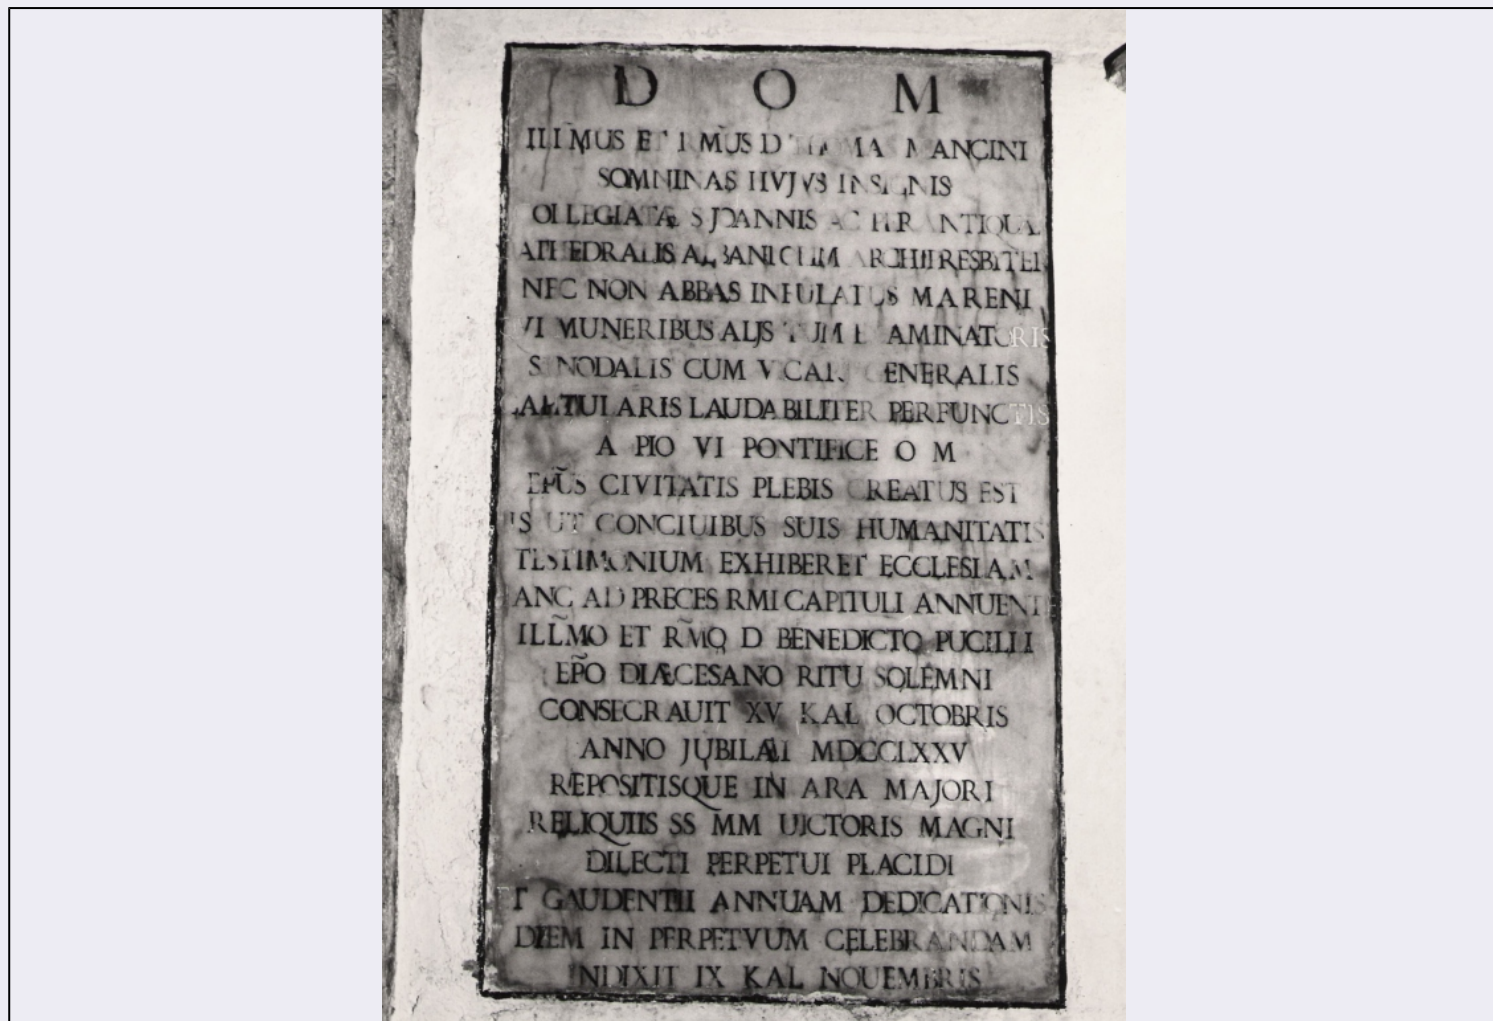 D O M
ILLMUS ET RMUS D THOMAS MANCINI
SOMNINAS HVJVS INSIGNIS
OLLEGIATÆ S JOANNIS AC PER ANTIQUÆ
ATHEDRALIS ALBANI CUM ARCHIPRESBITER
NEC NON ABBAS INFULATUS MARENI
VI MUNERIBUS ALJS TUM EXAMINATORIS
SYNODALIS CUM VICARI GENERALIS
CAPITULARIS LAUDABILITER PERFUNCTIS
A PIO VI PONTIFICE O M
EPUS CIVITATIS PLEBIS CREATUS EST
IS UT CONCIUIBUS SUIS HUMANITATIS
TESTIMONIUM EXHIBERET ECCLESIAM
ANC AD PRECES RMI CAPITULI ANNUENT
ILLMO ET RMO D BENEDICTO PUCILLI
EPO DIÆCESANO RITU SOLEMNI
CONSECRAUIT XV KAL OCTOBRIS
ANNO JUBILÆI MDCCLXXV
REPOSITISQUE IN ARA MAJORI
RELIQUIIS SS MM UICTORIS MAGNI
DILECTI PERPETUI PLACIDI
ET GAUDENTII ANNUAM DEDICATIONIS
DIEM IN PERPETVUM CELEBRANDAM
INDIXIT IX KAL NOUEMBRIS